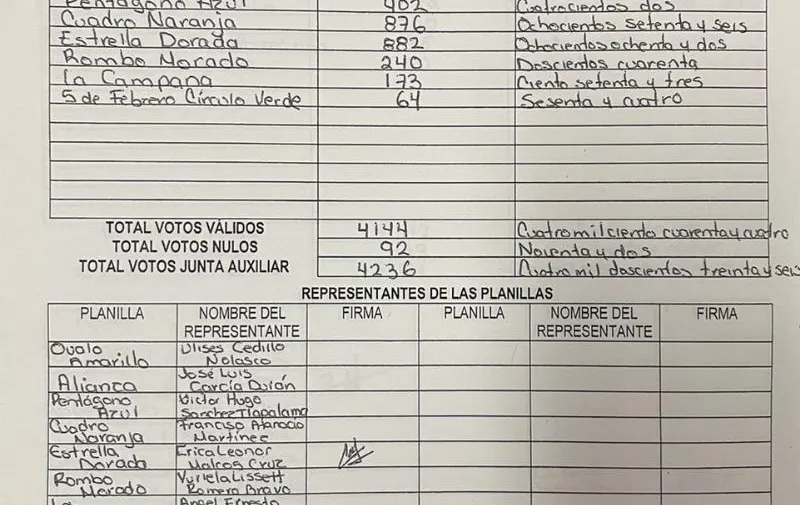 Pentágono Azul 402 Cuatrocientos dos
Cuadro Naranja 876 Ochocientos setenta y seis
Estrella Dorada 882 Ochocientos ochenta y dos
Rombo Morado 240 Doscientos cuarenta
La Campana 173 Ciento setenta y tres
5 de Febrero Círculo Verde 64 Sesenta y cuatro
TOTAL VOTOS VÁLIDOS 4144 Cuatro mil ciento cuarenta y cuatro
TOTAL VOTOS NULOS 92 Noventa y dos
TOTAL VOTOS JUNTA AUXILIAR 4236 Cuatro mil doscientos treinta y seis
REPRESENTANTES DE LAS PLANILLAS
PLANILLA NOMBRE DEL FIRMA PLANILLA NOMBRE DEL FIRMA
REPRESENTANTE REPRESENTANTE
Ovalo Ulises Cedillo
Amarillo Nolasco
Alianza José Luis
García Durán
Pentágono Victor Hugo
Azul Sanchez Tlapalama
Cuadro
Naranja Martinez
Estrella Erica Leonor
Dorada Malcos Cruz
Rombo Yuriela Lissett
Morado Romero Bravo
La Angel Ernesto